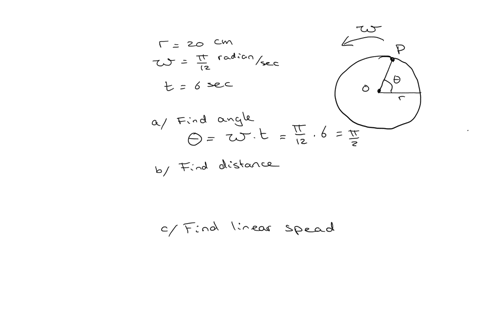 r = 20 cm
w = π/12 radian/sec
t = 6 sec
a/ Find angle
θ = w · t = π/12 · 6 = π/2
b/ Find distance
c/ Find linear spead
w
P
θ
O
r